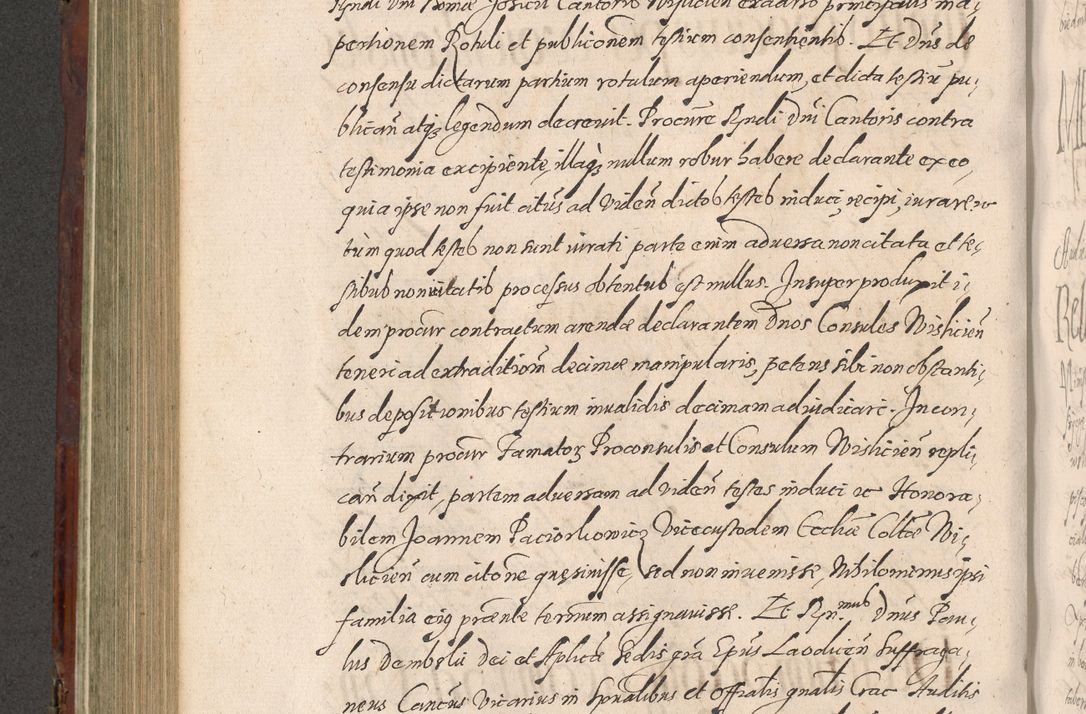 Rndi Dni Thomæ Josicii Cantoris Wislicien ex adverso principalis in a¸
pertionem Rotuli et publiconem testium consentientis. Et Dns de
consensu dictarum partium rotulum aperiendum, et dicta testiũ pu¸
blicañ atq3 legendum decrevit. Procurẽ Rndi Dni Cantoris contra
testimonia excipiente, illaq3 nullum robur habere declarante ex eo,
quia ipse non fuit citus ad videñ dictos testes induci, recipi, iurare
tum quod testes non sunt iurati parte enim adversa non citata et te¸
stibus non citatis processus obtentus est nullus. Insuper produxit i¸
dem procur contractum arendæ declarantem Dnos Consules Wislicieñ
teneri ad extraditionẽ decimæ manipularis, petens sibi non obstanti¸
bus depositionibus testium invalidis decimam adiudicari. In con¸
trarium procur Famator3 Proconsulis et Consulum Wislicieñ repli¸
cañ dixit, partem adversam ad videñ testes induci Honora¸
bilem Joannem Paciorkowicz Vicecustodem Ecclæ Coltæ Wi¸
slicieñ cum citone quæsivisse, sed non invenisse, Nihilominus ipsi
familia eiq præñte terminum assignavisse. Et Rn.mus Dnus Pau¸
lus Dembski Dei et Aplicæ Sedis gra Epus Laodicen Suffraga¸
neus Cancus Vicarius in Spralibus et Offialis gnalis Crac Auditis